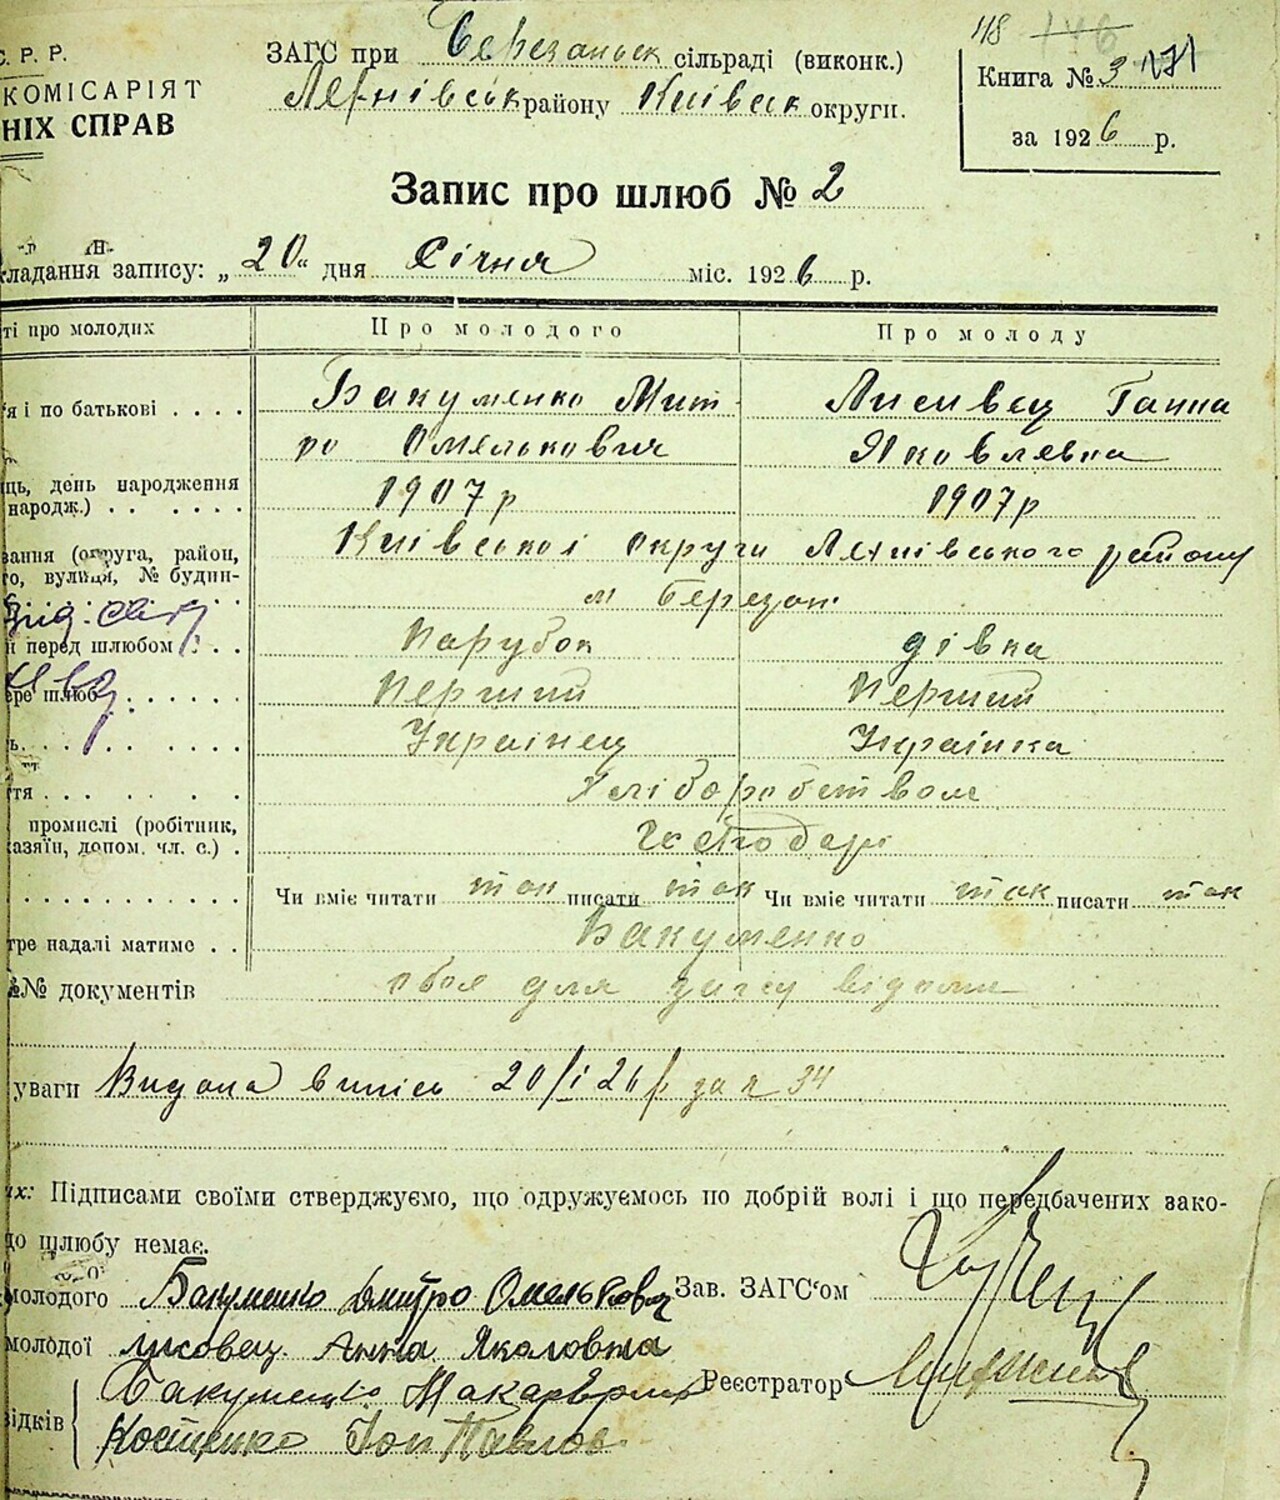 С. Р. Р.
КОМІСАРІЯТ
НІХ СПРАВ
ЗАГС при Березанськ сільраді (виконк.)
району Київськ округи.
118 146
Книга № 3 171
за 1926 р.
Запис про шлюб № 2
кладання запису: „20“ дня Січня міс. 1926 р.
ті про молодих Про молодого Про молоду
я і по батькові . . . . Бакуменко Мит Лисивец Ганна
ро Омелькович Яковлевна
ць, день народження
народж.) . . . . . . 1907 р 1907 р
вання (округа, район, Київської округи району
го, вулиця, № будин-
м Березані
й перед шлюбом . . . Парубок дівка
ере шлюб . . . . . . Перший Перший
ь. . . . . . . . . Українец Українка
ття . . . . . . . Хліборобством
промислі (робітник,
азяїн, допом. чл. с.) . Господарі
. . . . . . . . . . . Чи вміє читати так писати так Чи вміє читати так писати так
тре надалі матиме . . Бакуменко
№№ документів обоє для загсу відомі
уваги Видана випісь 20/і 26 р за № 34
их: Підписами своїми стверджуємо, що одружуємось по добрій волі і що передбачених зако-
до шлюбу немає.
молодого Бакуменко Дмитро Омелькович Зав. ЗАГС‘ом
молодої Лисовец Анна Яколовна
Бакуменко Макар Реєстратор
відків
Костенко Павлов